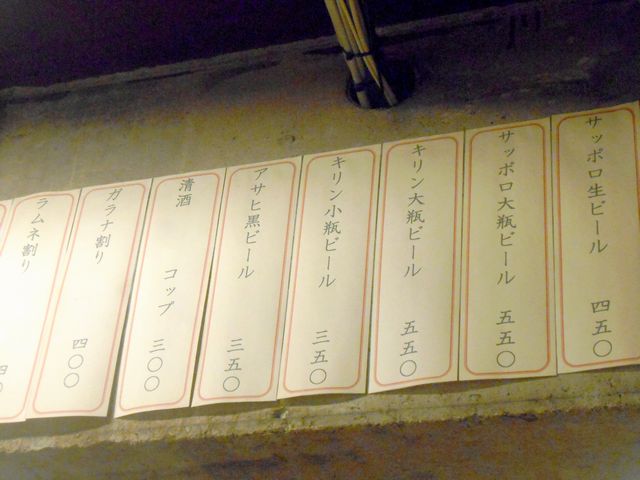 サッポロ生ビール 四五〇
サッポロ大瓶ビール 五五〇
キリン大瓶ビール 五五〇
キリン小瓶ビール 三五〇
アサヒ黒ビール 三五〇
清酒 コップ 三〇〇
ガラナ割り 四〇〇
ラムネ割り